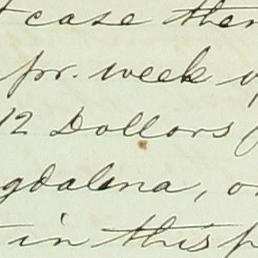 case then
pr. week
12 Dollars
gdalena, o
in this p